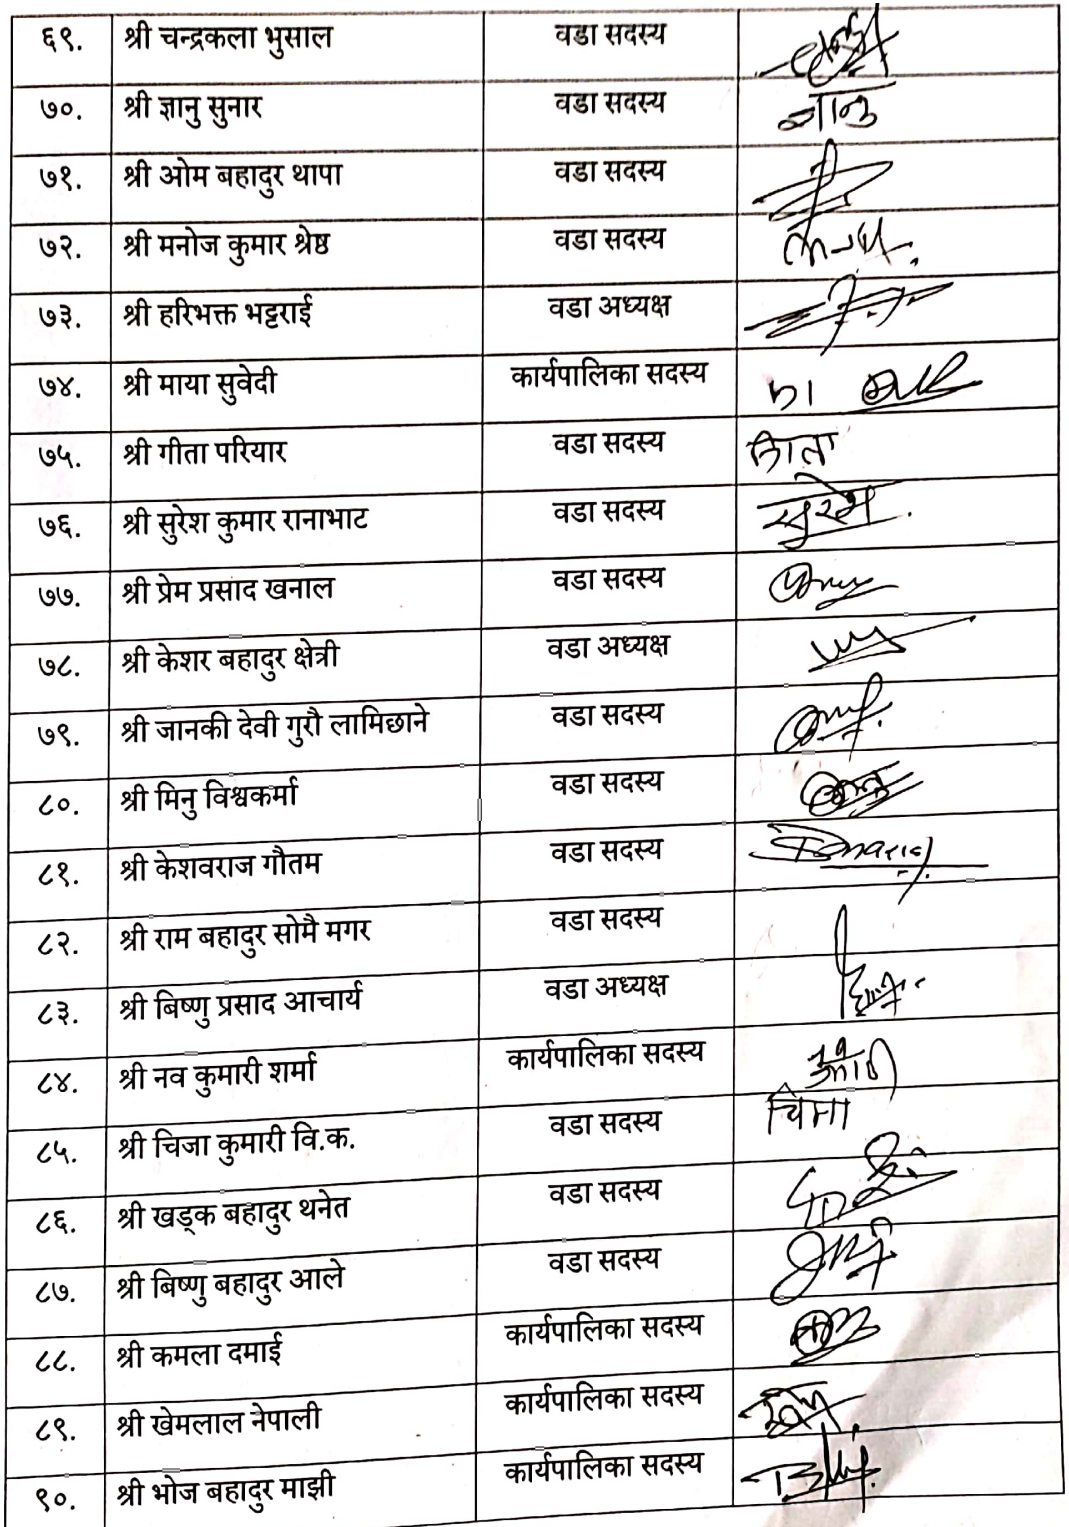 ६९. श्री चन्द्रकला भुसाल वडा सदस्य
७०. श्री ज्ञानु सुनार वडा सदस्य ज्ञानु
७१. श्री ओम बहादुर थापा वडा सदस्य
७२. श्री मनोज कुमार श्रेष्ठ वडा सदस्य
७३. श्री हरिभक्त भट्टराई वडा अध्यक्ष
७४. श्री माया सुवेदी कार्यपालिका सदस्य
७५. श्री गीता परियार वडा सदस्य गिता
७६. श्री सुरेश कुमार रानाभाट वडा सदस्य सुरेश
७७. श्री प्रेम प्रसाद खनाल वडा सदस्य
७८. श्री केशर बहादुर क्षेत्री वडा अध्यक्ष
७९. श्री जानकी देवी गुरौ लामिछाने वडा सदस्य
८०. श्री मिनु विश्वकर्मा वडा सदस्य
८१. श्री केशवराज गौतम वडा सदस्य
८२. श्री राम बहादुर सोमै मगर वडा सदस्य
८३. श्री बिष्णु प्रसाद आचार्य वडा अध्यक्ष
८४. श्री नव कुमारी शर्मा कार्यपालिका सदस्य
८५. श्री चिजा कुमारी वि.क. वडा सदस्य
८६. श्री खड्क बहादुर थनेत वडा सदस्य
८७. श्री बिष्णु बहादुर आले वडा सदस्य
८८. श्री कमला दमाई कार्यपालिका सदस्य
८९. श्री खेमलाल नेपाली कार्यपालिका सदस्य
९०. श्री भोज बहादुर माझी कार्यपालिका सदस्य